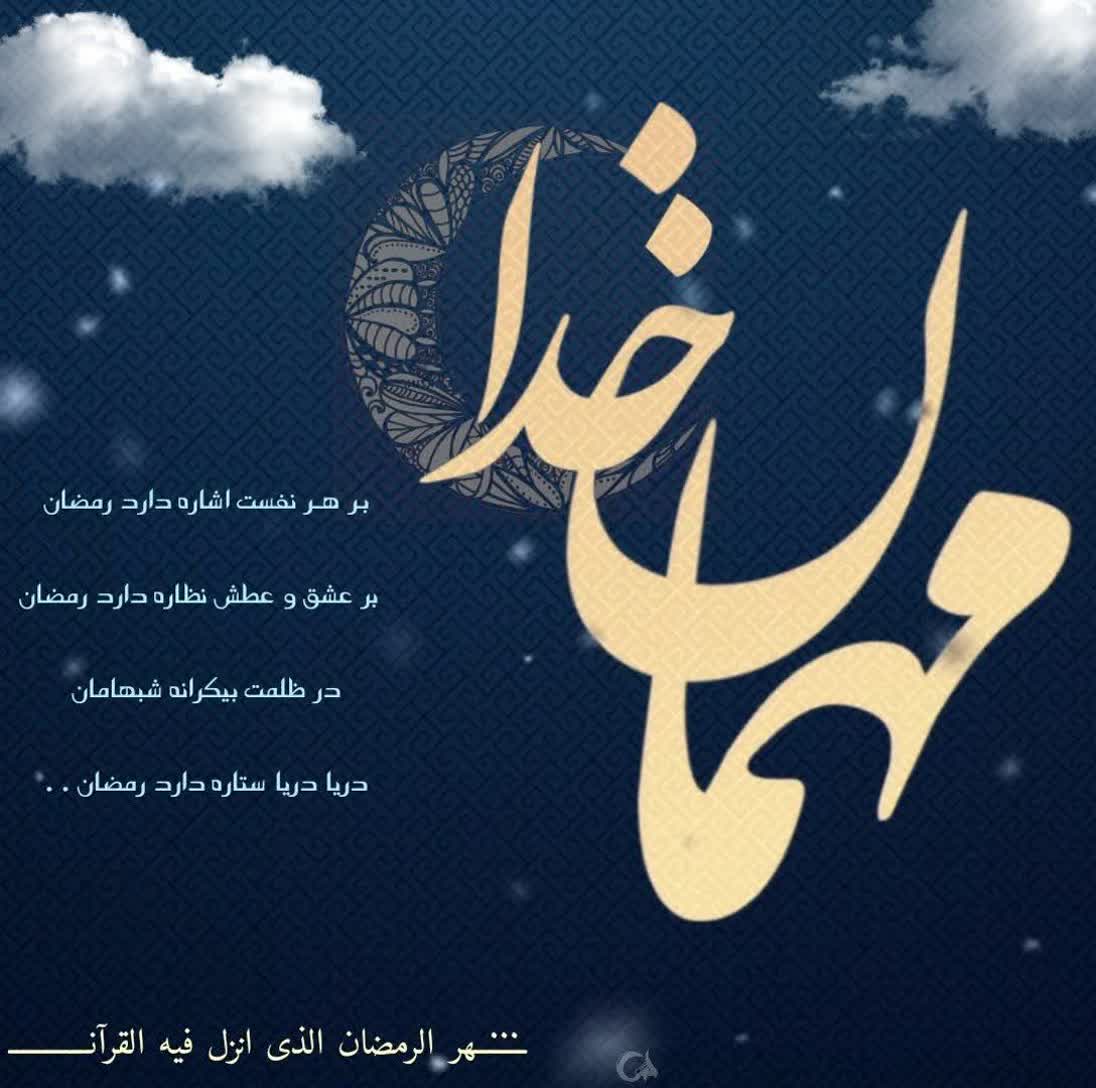 مهمان خدا
بر هر نفست اشاره دارد رمضان
بر عشق و عطش نظاره دارد رمضان
در ظلمت بیکرانه شبهامان
دریا دریا ستاره دارد رمضان . .
شهر الرمضان الذی انزل فیه القرآن